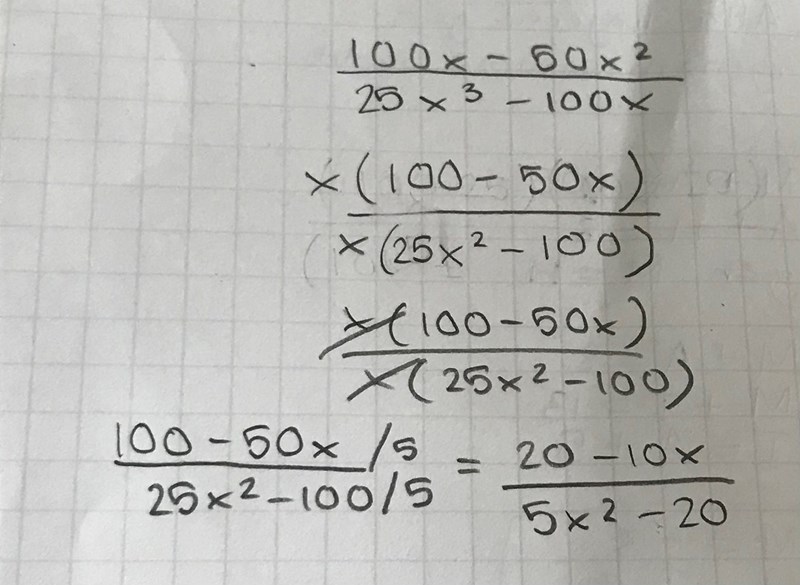 100x - 50x²
25x³ - 100x
x(100 - 50x)
x(25x² - 100)
x(100 - 50x)
x(25x² - 100)
100 - 50x /5 = 20 - 10x
25x² - 100/5 5x² - 20